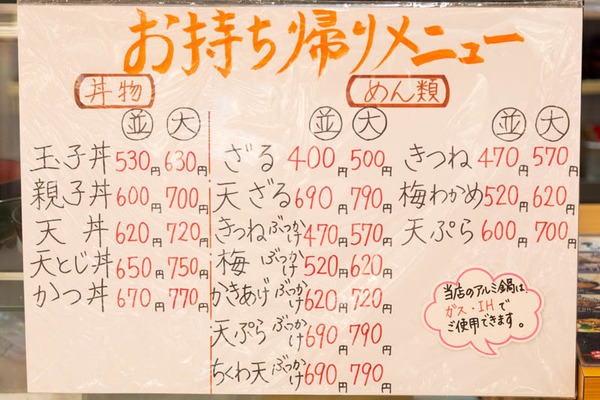 お持ち帰りメニュー
丼物
並 大
玉子丼 530円 630円
親子丼 600円 700円
天丼 620円 720円
天とじ丼 650円 750円
かつ丼 670円 770円
めん類
並 大
ざる 400円 500円
天ざる 690円 790円
きつねぶっかけ 470円 570円
梅ぶっかけ 520円 620円
かきあげぶっかけ 620円 720円
天ぷらぶっかけ 690円 790円
ちくわ天ぶっかけ 690円 790円
並 大
きつね 470円 570円
梅わかめ 520円 620円
天ぷら 600円 700円
当店のアルミ鍋は、
ガス・IHで
ご使用できます。